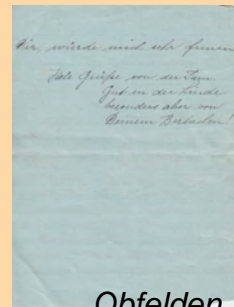 Dir, würde mich sehr freuen
Viele Grüsse von der Fam.
Gut in der Linde
besonders aber von
Deinem
Obfelden